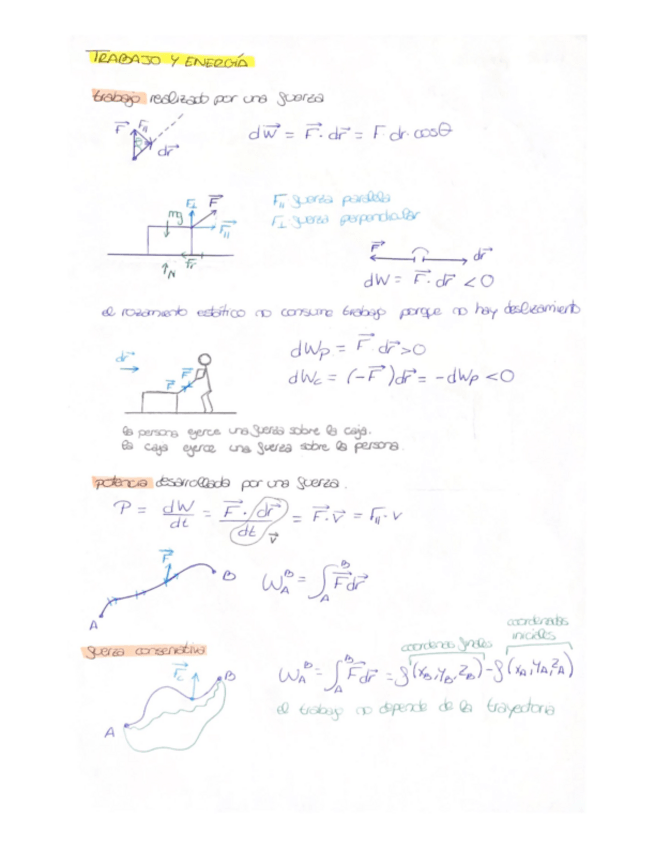 TRABAJO Y ENERGÍA
trabajo realizado por una fuerza
F⃗ F∥ θ dr⃗
dW⃗ = F⃗ · dr⃗ = F · dr · cosθ
mg F⊥ F⃗ F∥ Fr N
F∥ fuerza paralela
F⊥ fuerza perpendicular
F⃗ dr⃗
dW = F⃗ · dr⃗ < 0
el rozamiento estático no consume trabajo porque no hay deslizamiento
dr⃗ F⃗ F⃗
dWp = F⃗ · dr⃗ > 0
dWc = (-F⃗) dr⃗ = -dWp < 0
la persona ejerce una fuerza sobre la caja.
la caja ejerce una fuerza sobre la persona.
potencia desarrollada por una fuerza.
P = dW/dt = F⃗ · dr⃗/dt = F⃗ · v⃗ = F∥ · v
v⃗
F⃗ A B
W_A^B = ∫_A^B F⃗ dr⃗
fuerza conservativa
coordenadas iniciales
coordenas finales
F⃗c A B
W_A^B = ∫_A^B F⃗ dr⃗ = f(xB, yB, zB) - f(xA, yA, zA)
el trabajo no depende de la trayectoria